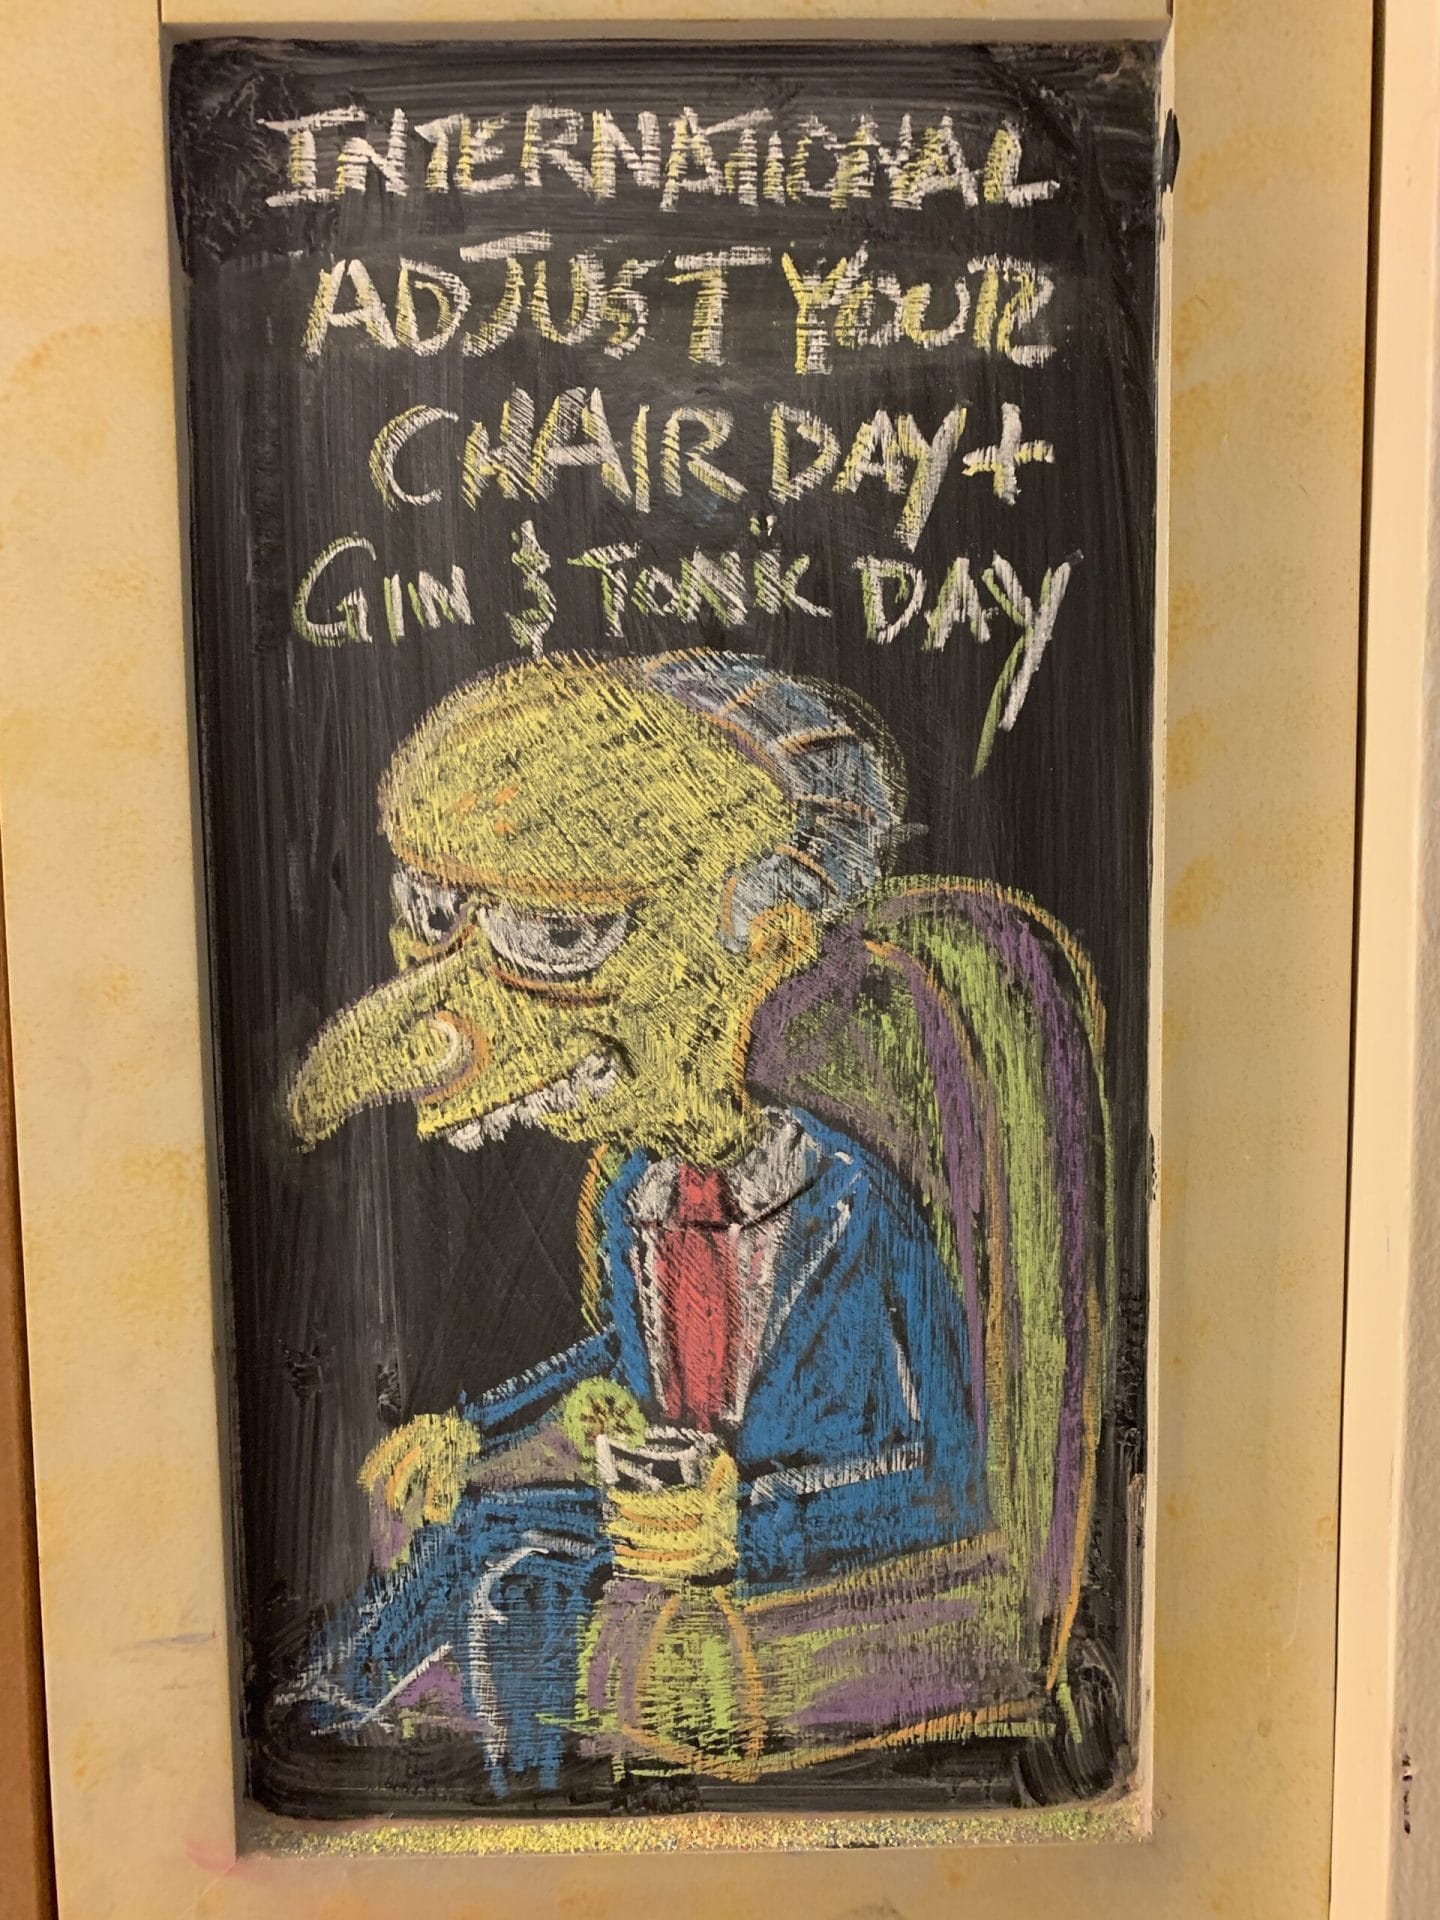 INTERNATIONAL
ADJUST YOUR
CHAIR DAY +
GIN & TONIK DAY